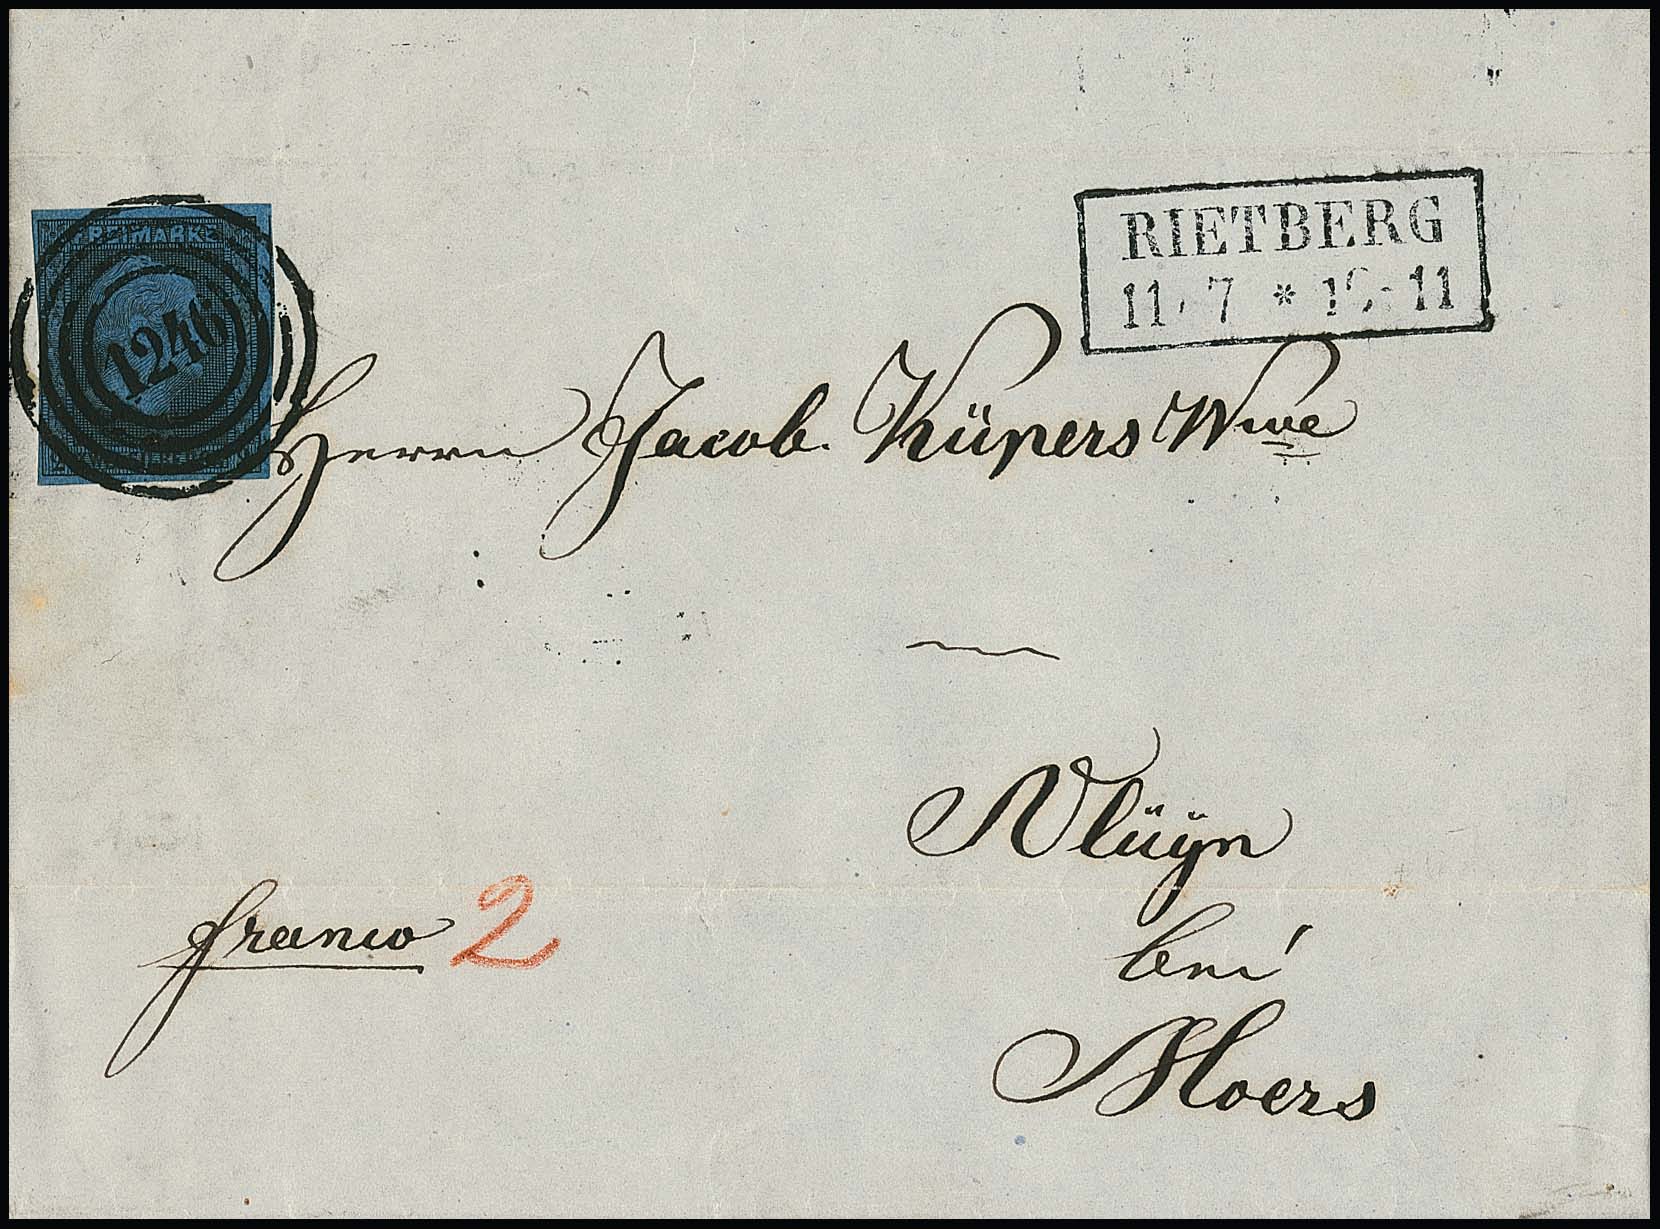 FREIMARKE
1246
RIETBERG
11 7 * 10-11
Herrn Jacob Küpers Wwe
Vlüÿn
bei
Moers
franco 2